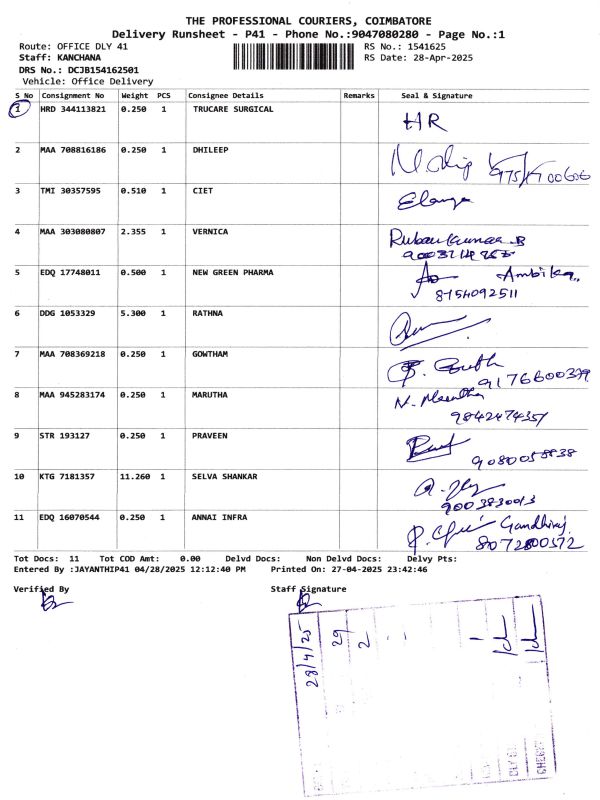 THE PROFESSIONAL COURIERS, COIMBATORE
Delivery Runsheet - P41 - Phone No.:9047080280 - Page No.:1
Route: OFFICE DLY 41 RS No.: 1541625
Staff: KANCHANA RS Date: 28-Apr-2025
DRS No.: DCJB154162501
Vehicle: Office Delivery
S No Consignment No Weight PCS Consignee Details Remarks Seal & Signature
1 HRD 344113821 0.250 1 TRUCARE SURGICAL HR
2 MAA 708816186 0.250 1 DHILEEP
3 TMI 30357595 0.510 1 CIET
4 MAA 303080807 2.355 1 VERNICA Rubankumar B
5 EDQ 17748011 0.500 1 NEW GREEN PHARMA Ambika
8754092511
6 DDG 1053329 5.300 1 RATHNA
7 MAA 708369218 0.250 1 GOWTHAM
9176600379
8 MAA 945283174 0.250 1 MARUTHA
9842474357
9 STR 193127 0.250 1 PRAVEEN
9080058838
10 KTG 7181357 11.260 1 SELVA SHANKAR
9003830013
11 EDQ 16070544 0.250 1 ANNAI INFRA Gandhiraj
8072800572
Tot Docs: 11 Tot COD Amt: 0.00 Delvd Docs: Non Delvd Docs: Delvy Pts:
Entered By :JAYANTHIP41 04/28/2025 12:12:40 PM Printed On: 27-04-2025 23:42:46
Verified By Staff Signature
28/4/25
29
2